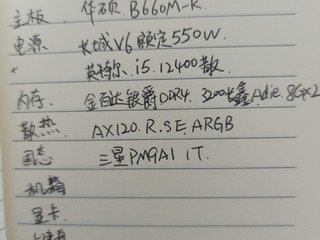 主板 华硕 B660M-K.
电源 长城V6 额定550W.
* 英特尔. i5. 12400散.
内存. 金百达银爵DDR4. 3200长鑫Adie. 8G×2
散热. AX120. R. SE. ARGB
固态 三星PM9A1 1T.
机箱
显卡.